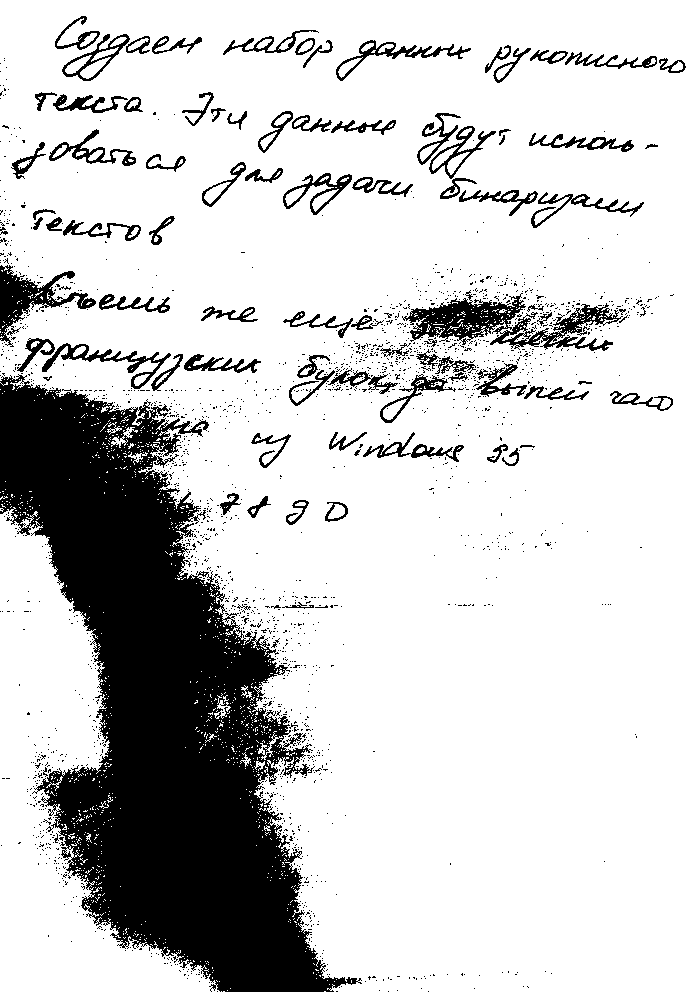 Создаем набор данных рукописного
текста. Эти данные будут исполь-
зоваться для задачи бинаризации
текстов
Съешь же ещё мягких
французских булок, да выпей чаю
из Windows 95
7 8 9 0